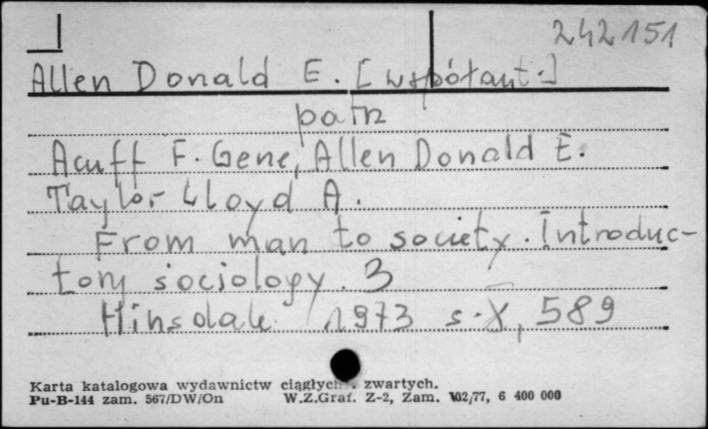 242151
Allen Donald E. [współaut.]
patrz
Acuff F. Gene, Allen Donald E.
Taylor Lloyd A.
From man to society. Introduc-
tory sociology. 3
Hinsdale 1973 s. X, 589
Karta katalogowa wydawnictw ciągłych i zwartych.
Pu-B-144 zam. 567/DW/On W.Z.Graf. Z-2, Zam. 102/77, 6 400 000